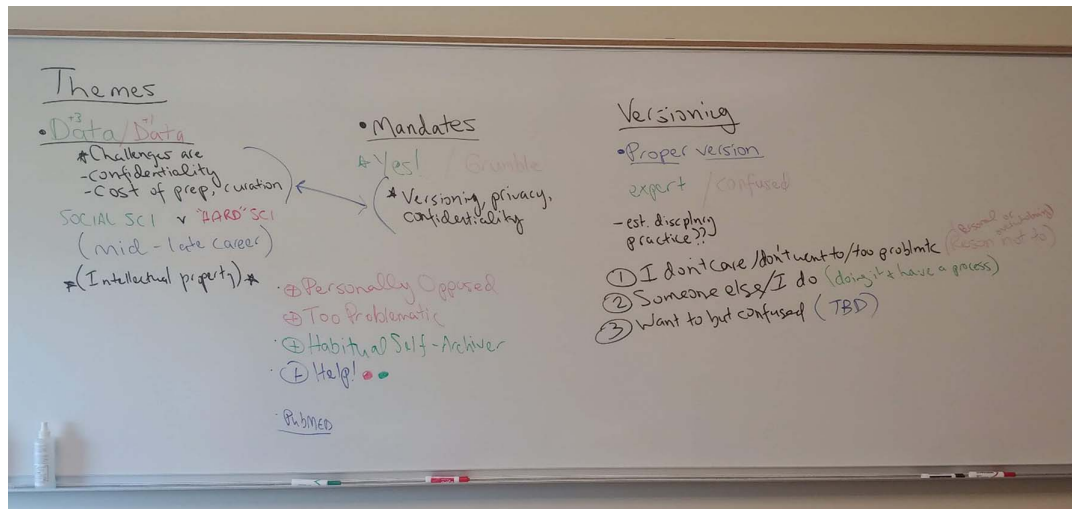 Themes
+3 +1
• Data/Data
* Challenges are
- confidentiality
- Cost of prep, curation
SOCIAL SCI v "HARD" SCI
(mid - late career)
* (Intellectual property) *
• Mandates
* Yes! / Grumble
* Versioning, privacy,
confidentiality
• + Personally Opposed
+ Too Problematic
• + Habitual Self-Archiver
• + Help!
• PubMED
Versioning
• Proper version
expert / confused
- est. discplnry
practice??
① I don't care/don't want to/too problmtc (Reason not to)
Personal or
② Someone else/I do (doing it & have a process)
③ Want to but confused (TBD)